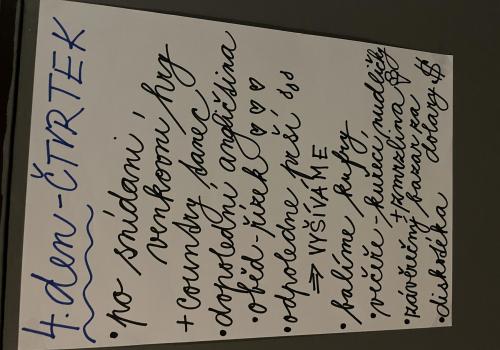 4. den - ČTVRTEK
• po snídani,
venkovní hry
+ country tanec
• dopolední angličtina
• oběd - řízek ♡♡♡
• odpoledne prší
⇒ VYŠÍVÁME
• balíme kufry
• večeře - kuřecí nudličky
+ zmrzlina
• závěrečný bazar za
dolary $
• diskotéka